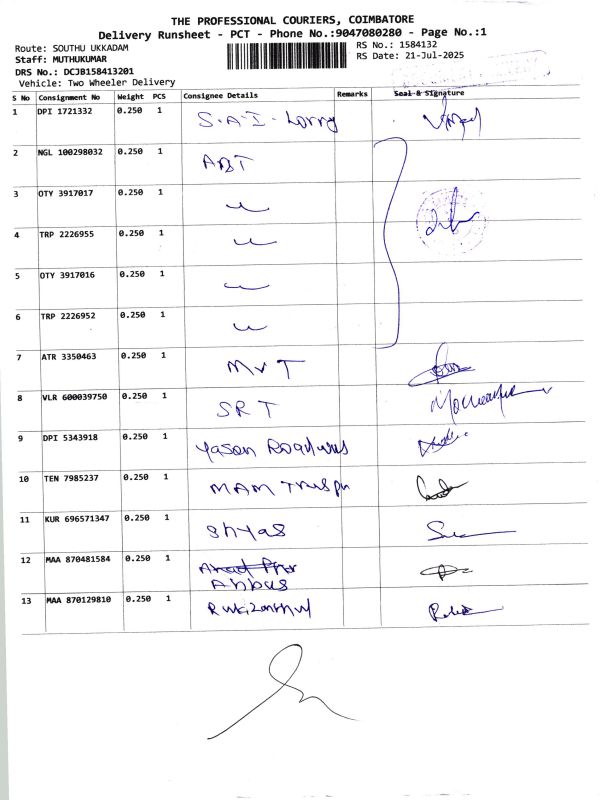 THE PROFESSIONAL COURIERS, COIMBATORE
Delivery Runsheet - PCT - Phone No.:9047080280 - Page No.:1
Route: SOUTHU UKKADAM
RS No.: 1584132
Staff: MUTHUKUMAR
RS Date: 21-Jul-2025
DRS No.: DCJB158413201
Vehicle: Two Wheeler Delivery
S No Consignment No Weight PCS Consignee Details Remarks Seal & Signature
1 DPI 1721332 0.250 1 S.A.I - Lorry
2 NGL 100298032 0.250 1 ABT
3 OTY 3917017 0.250 1
4 TRP 2226955 0.250 1
5 OTY 3917016 0.250 1
6 TRP 2226952 0.250 1
7 ATR 3350463 0.250 1 MVT
8 VLR 600039750 0.250 1 SRT
9 DPI 5343918 0.250 1
10 TEN 7985237 0.250 1 MAM
11 KUR 696571347 0.250 1
12 MAA 870481584 0.250 1
13 MAA 870129810 0.250 1